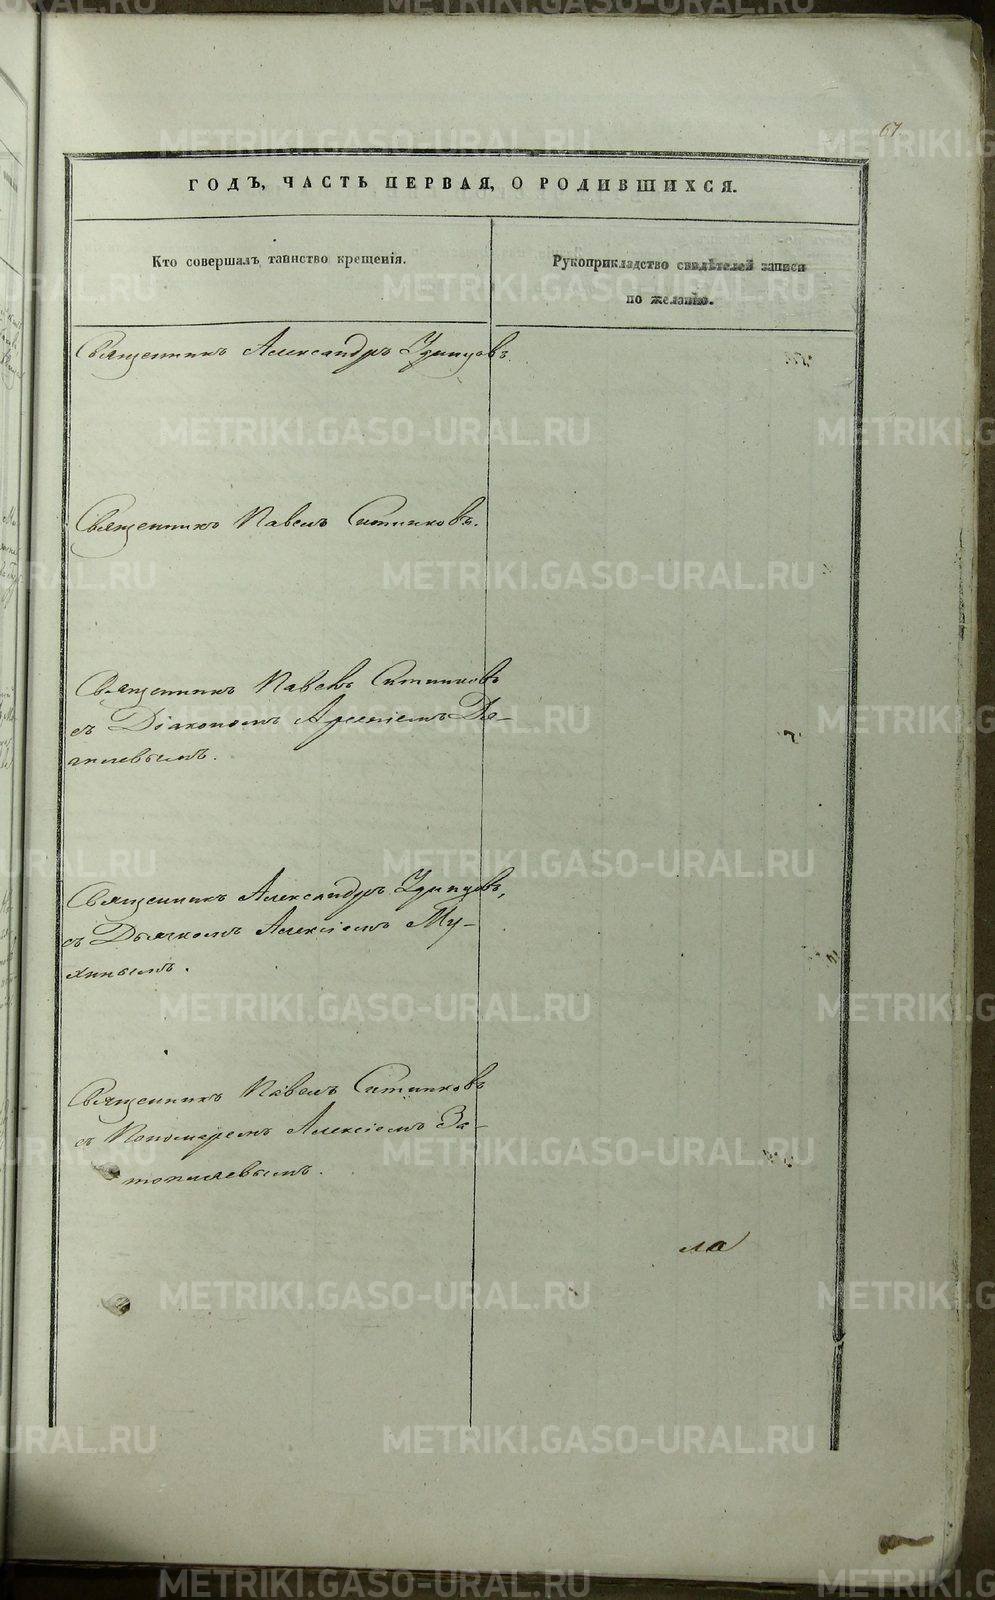 67
ГОДЪ, ЧАСТЬ ПЕРВАЯ, О РОДИВШИХСЯ.
Кто совершалъ таинство крещенія.
Рукоприкладство свидѣтелей записи
по желанію.
Священникъ Александръ Удинцовъ.
Священникъ Павелъ Ситниковъ.
Священникъ Павелъ Ситниковъ
съ Діакономъ Арсеніемъ
Священникъ Александръ Удинцовъ,
съ Дьячкомъ Алексіемъ Му-
хинымъ.
Священникъ Павелъ Ситниковъ
съ Пономаремъ Алексіемъ За-
топляевымъ.
ла
METRIKI.GASO-URAL.RU